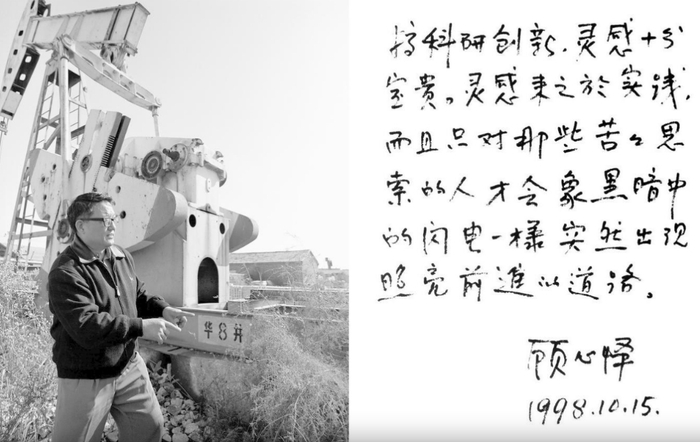 华8井
搞科研创新.灵感十分
宝貴。灵感来之於实践,
而且只对那些苦々思
索的人才会象黑暗中
的闪电一樣突然出现
照亮前進的道路。
顾心怿
1998.10.15.